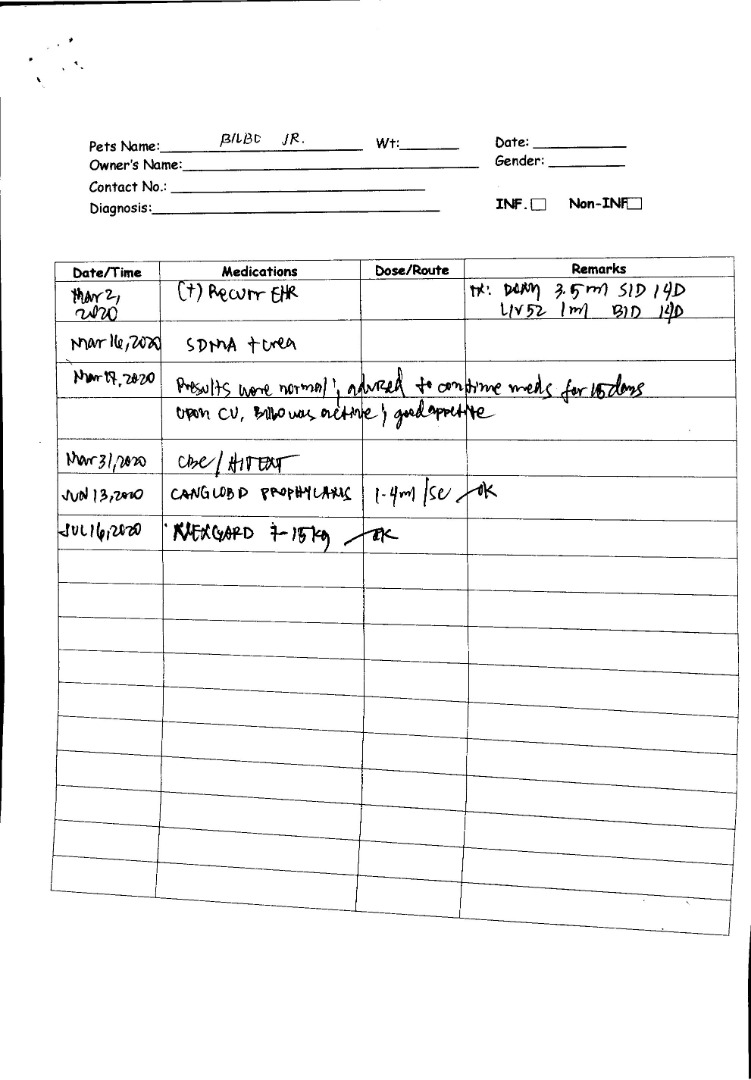 Pets Name: BILBO JR. Wt: Date:
Owner's Name: Gender:
Contact No.:
Diagnosis: INF. Non-INF
Date/Time Medications Dose/Route Remarks
Mar 2, 2020 (+) Recurr EHR TX: 3.5 ml SID 14D
LIV52 1ml BID 14D
Mar 16, 2020 SDMA + crea
Mar 17, 2020 Results were normal; advised to continue meds for 15 days
Upon CU, Bilbo was active; good appetite
Mar 31, 2020 CBC /
JUN 13, 2020 CANGLOB D PROPHYLAXIS 1-4ml /SC OK
JUL 16, 2020 NEXGARD 7-15kg OK